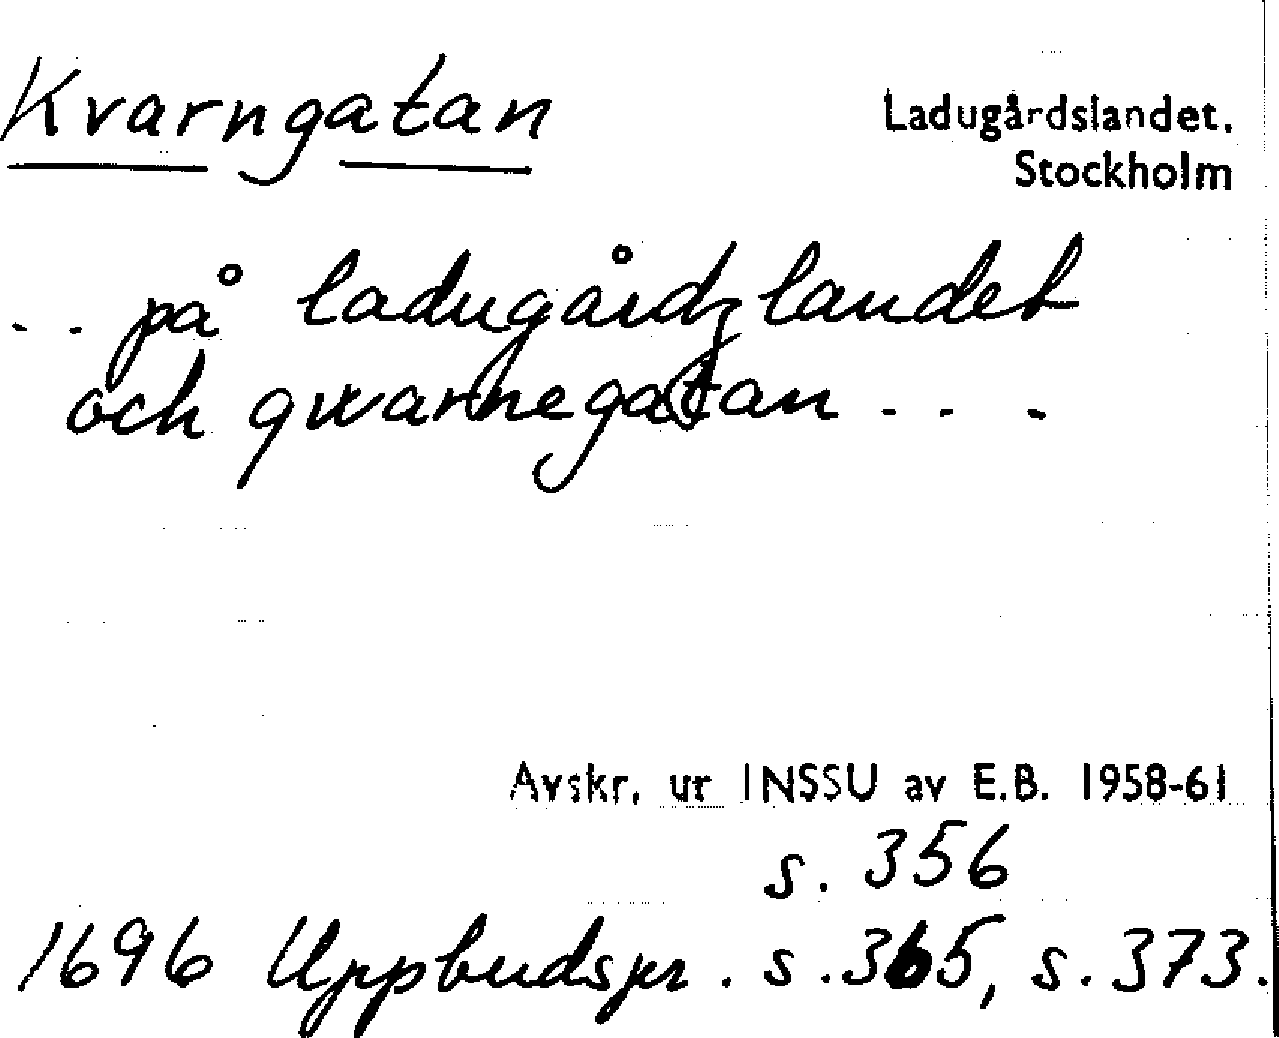 Kvarngatan
Ladugårdslandet.
Stockholm
.. på ladugårdzlandet
och qwarnegatan . . .
Avskr. ur INSSU av E.B. 1958-61
s. 356
1696 Uppbudspr. s.365, s.373.